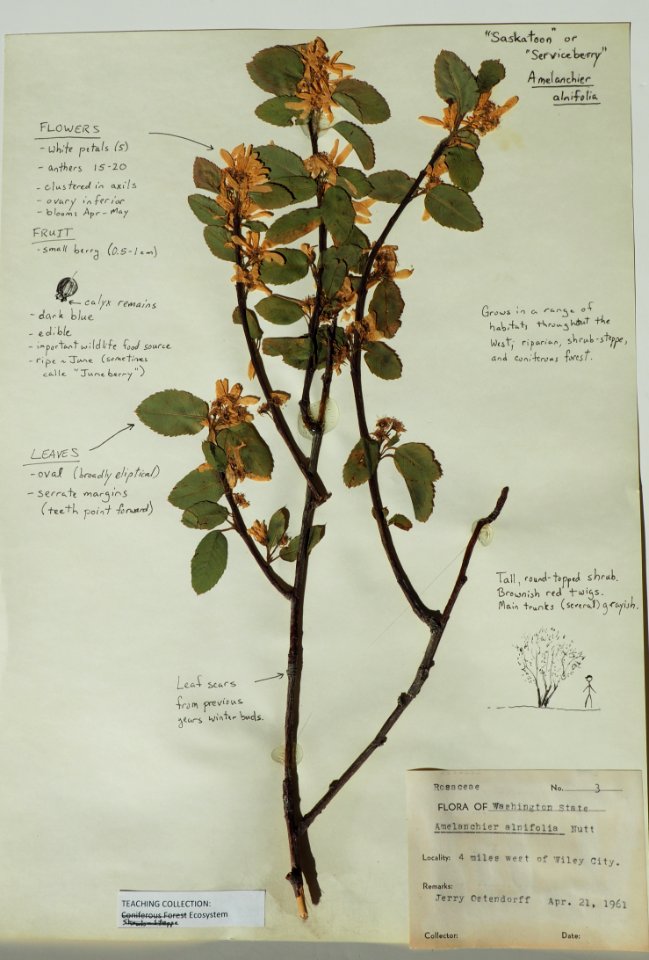 "Saskatoon" or
"Serviceberry"
Amelanchier
alnifolia
FLOWERS
- white petals (5)
- anthers 15-20
- clustered in axils
- ovary inferior
- blooms Apr-May
FRUIT
- small berry (0.5-1cm)
← calyx remains
- dark blue
- edible
- important wildlife food source
- ripe ~ June (sometimes
calle "Juneberry")
LEAVES
- oval (broadly eliptical)
- serrate margins
(teeth point forward)
Grows in a range of
habitats throughout the
West; riparian, shrub-steppe,
and coniferous forest.
Tall, round-topped shrub.
Brownish red twigs.
Main trunks (several) grayish.
Leaf scars
from previous
years winter buds.
Rosaceae No. 3
FLORA OF Washington State
Amelanchier alnifolia Nutt
Locality: 4 miles west of Wiley City.
Remarks:
Jerry Ostendorff Apr. 21, 1961
Collector: Date:
TEACHING COLLECTION:
Coniferous Forest Ecosystem
Shrub-steppe